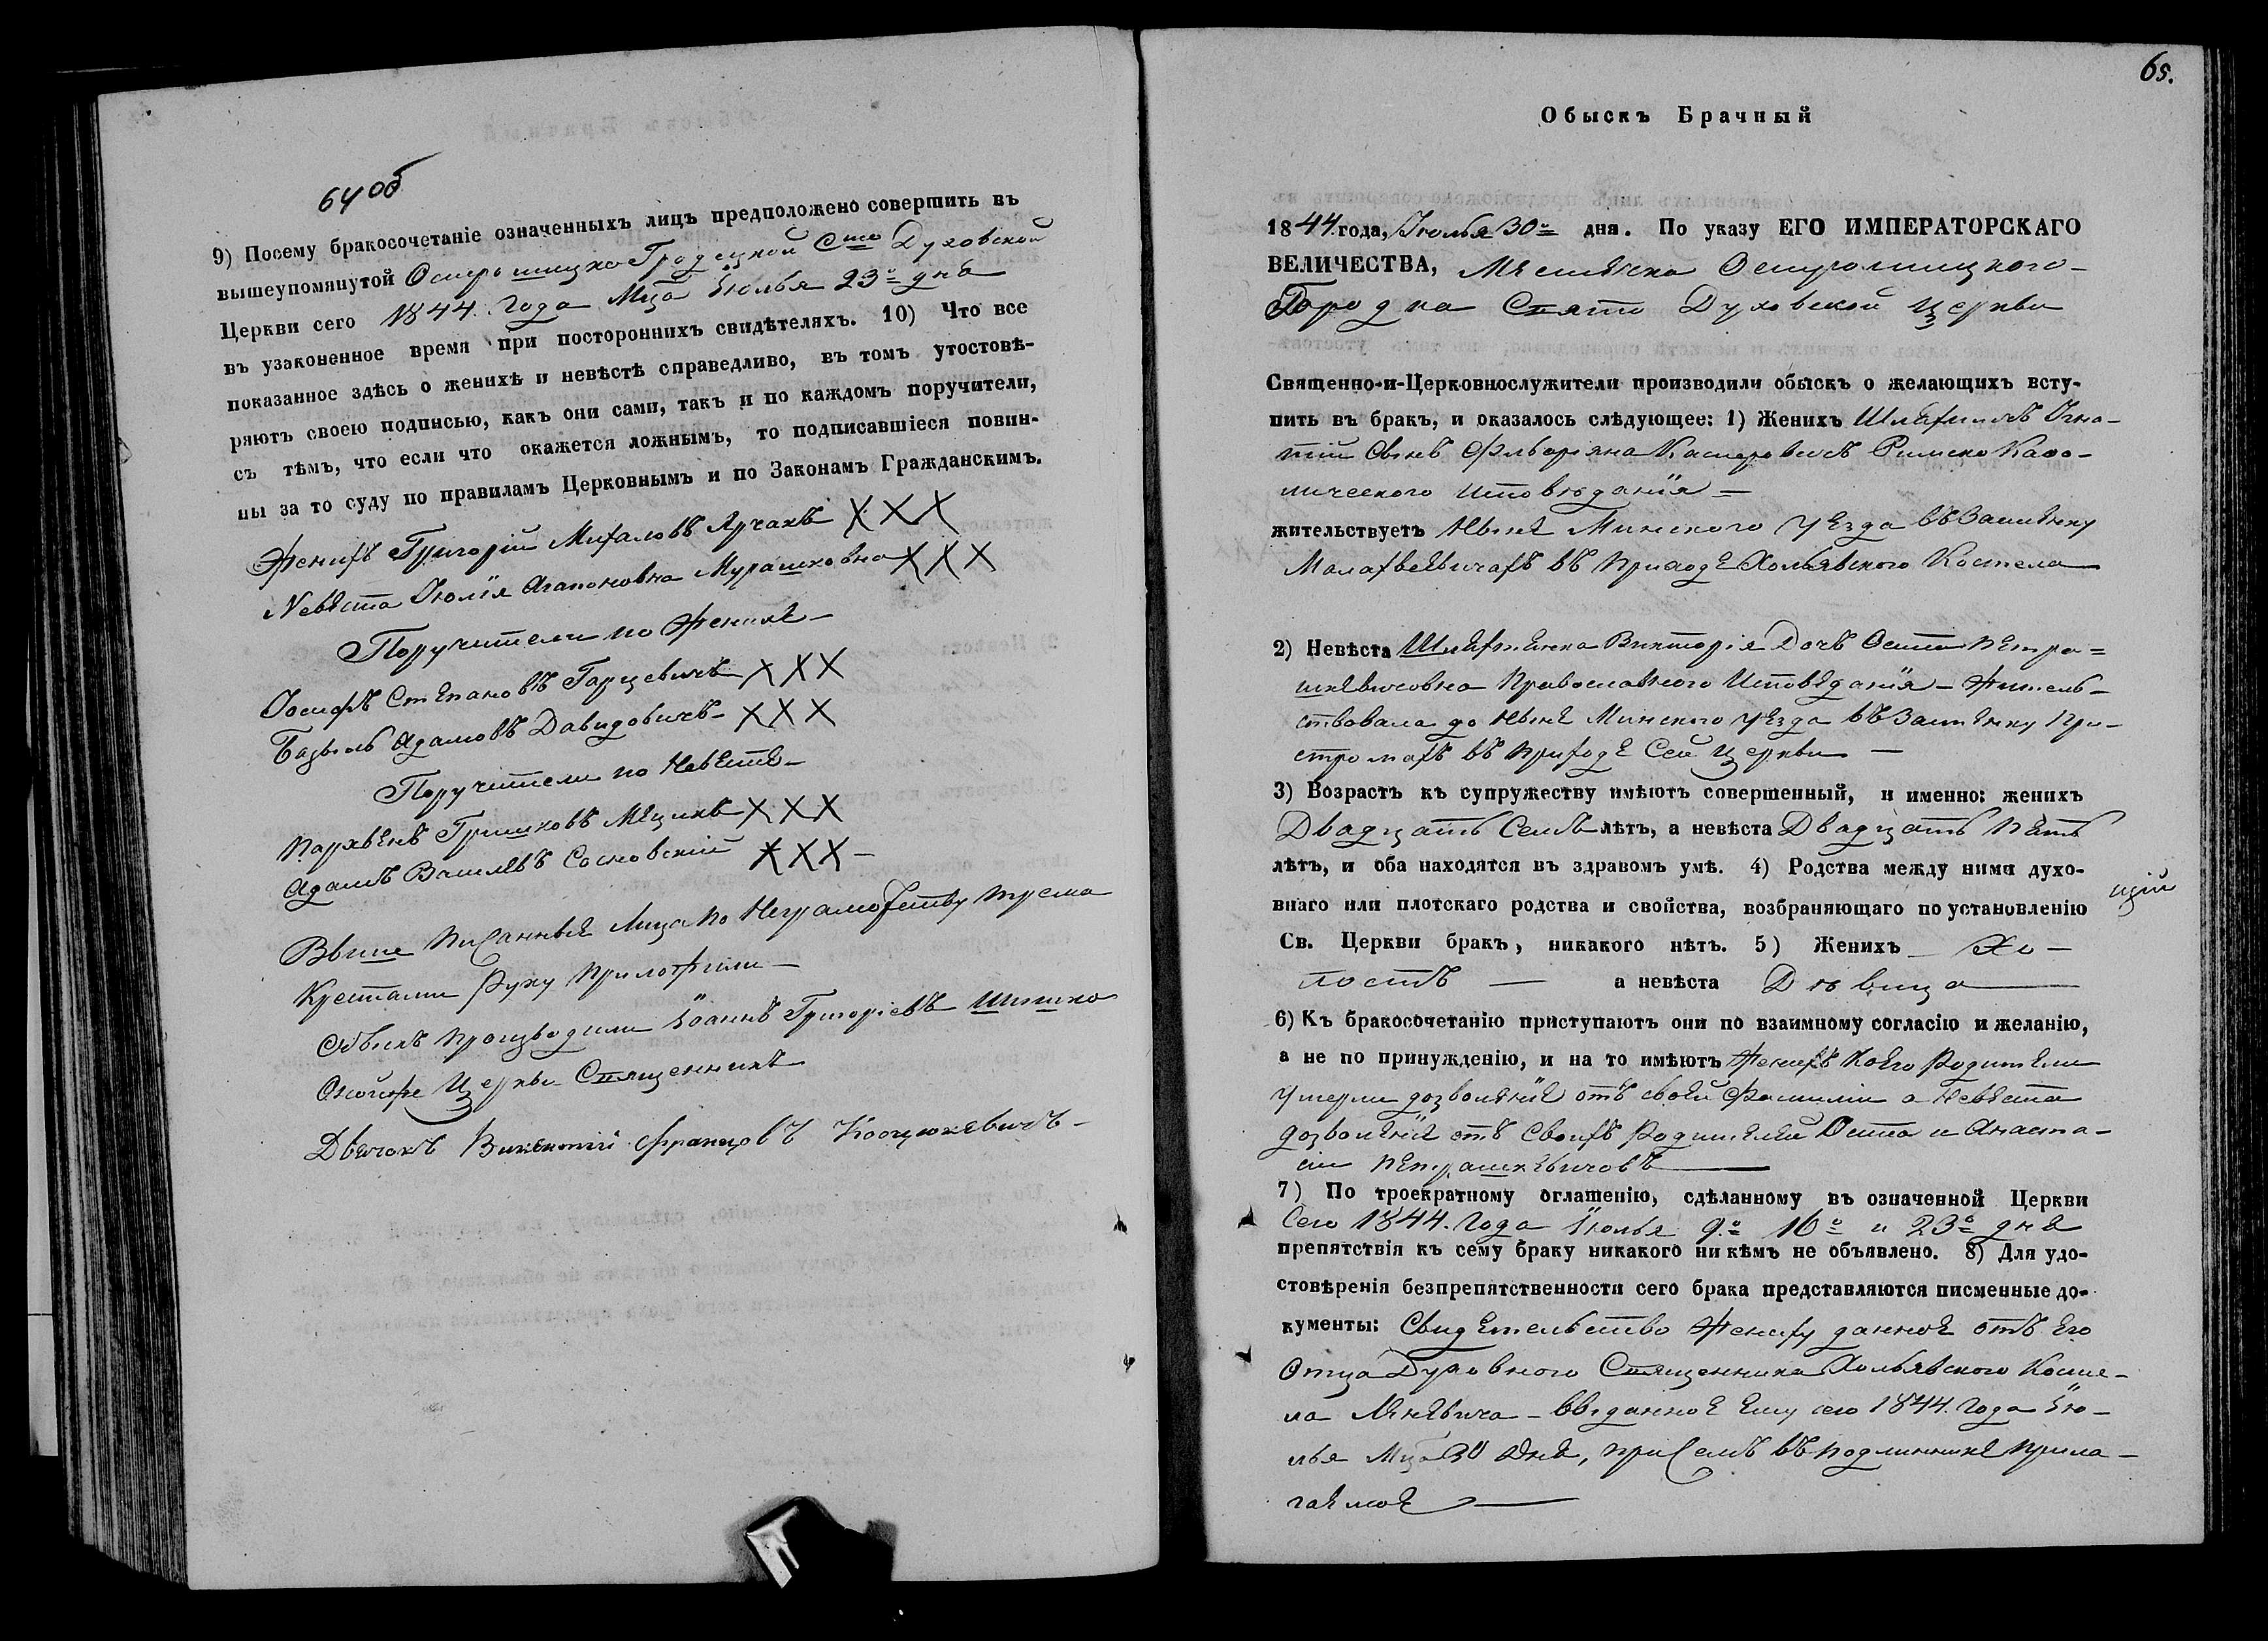 64 об
9) Посему бракосочетаніе означенныхъ лицъ предположено совершить въ
вышеупомянутой Острошицко Гродецкой Сто Духовской
Церкви сего 1844. Года Мца Іюлья 23го дня
въ узаконенное время при постороннихъ свидѣтеляхъ. 10) Что все
показанное здѣсь о женихѣ и невѣстѣ справедливо, въ томъ утостовѣ-
ряютъ своею подписью, какъ они сами, такъ и по каждомъ поручители,
съ тѣмъ, что если что окажется ложнымъ, то подписавшіеся повин-
ны за то суду по правиламъ Церковнымъ и по Законамъ Гражданскимъ.
Женихъ Григорій Михаловъ Ярчакъ ХХХ
Невѣста Юлія Агапоновна Мурашковна ХХХ
Поручители по Женихѣ —
Іосифъ Степановъ Гарцевичъ ХХХ
Базыль Адамовъ Давидовичъ - ХХХ
Поручители по Невѣстѣ —
Пархвенъ Гришковъ Мецикъ ХХХ
Адамъ Васильевъ Сосновскій ХХХ —
Выше писанные Лица по Неграмотству трема
Крестами Руку приложили —
Обыскъ производили Іоаннъ Григоріевъ Шишко
Оной же Церкви Священникъ
Дьячокъ Викентій Францовъ Косцюкевичъ -
65.
Обыскъ Брачный
1844. года, Іюлья 30го дня. По указу ЕГО ИМПЕРАТОРСКАГО
ВЕЛИЧЕСТВА, Мястечка Острошицкого-
Городка Свято Духовской Церкви
Священно-и-Церковнослужители производили обыскъ о желающихъ всту-
пить въ брак, и оказалось слѣдующее: 1) Женихъ Шляхтичъ Игна-
тій Сынъ Фльоріяна Касперовичъ Римско Като-
лического исповѣданія —
жительствуетъ Нынѣ Минского Уезда въ Застенку
Малахвеевичахъ въ приходе Хольявского Костела
2) Невѣста Шляхтенка Викторія Дочъ Осипа Петра=
шкевичовна Православного Исповеданія — Житель-
ствовала до Нынѣ Минского Уезда въ Застенку При-
стромахъ въ приходе Сей Церкви —
3) Возрастъ къ супружеству имѣютъ совершенный, и именно: женихъ
Двадцать Семь лѣтъ, а невѣста Двадцать Пять
лѣтъ, и оба находятся въ здравомъ умѣ. 4) Родства между ними духо-
внаго или плотскаго родства и свойства, возбраняющаго по установленію
Св. Церкви бракъ, никакого нѣтъ. 5) Женихъ — Хо —
лостъ — а невѣста Дѣвица
6) Къ бракосочетанію приступаютъ они по взаимному согласію и желанію,
а не по принужденію, и на то имѣютъ Женихъ Коего Родители
умерли дозволеніе отъ своей Фамиліи а Невѣста
дозволеніе отъ Своихъ Родителей Осипа и Анаста-
сіи Петрашкевичовъ
7) По троекратному оглашенію, сдѣланному въ означенной Церкви
Сего 1844. Года Іюлья 9го 16го и 23го дня
препятствія къ сему браку никакого ни кѣмъ не объявлено. 8) Для удо-
стовѣренія безпрепятственности сего брака представляются писменные до-
кументы: Свидетельство Жениху данное отъ Его
Отца Духовного Священника Хольявского Косте-
ла — выданное Ему сего 1844. Года Ію-
лья Мца 30 Дня, при Семъ въ подлиннике прила-
гаемое —